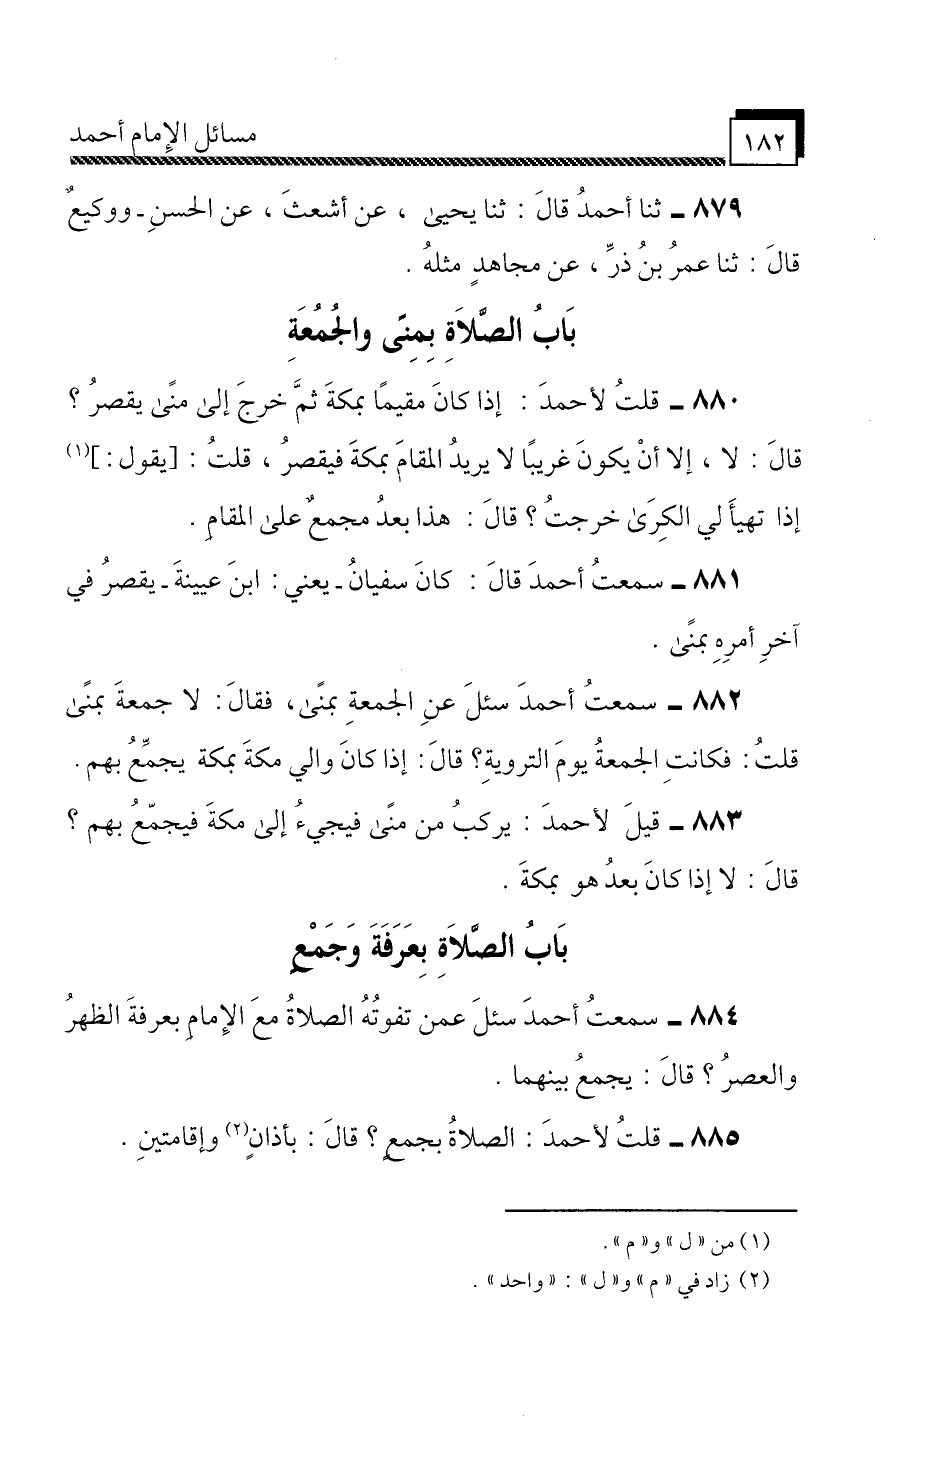 ١٨٢
مسائل الإمام أحمد
٨٧٩ ـ ثنا أحمدُ قالَ : ثنا يحيىٰ ، عن أشعثَ ، عن الحسنِ ـ ووكيعٌ
قالَ : ثنا عمرُ بنُ ذرٍّ ، عن مجاهدٍ مثلهُ .
بَابُ الصَّلَاةِ بِمِنًى والجُمُعَةِ
٨٨٠ ـ قلتُ لأحمدَ : إذا كانَ مقيمًا بمكةَ ثمَّ خرجَ إلىٰ منًىٰ يقصرُ ؟
قالَ : لا ، إلا أنْ يكونَ غريبًا لا يريدُ المقامَ بمكةَ فيقصرُ ، قلتُ : [يقول : ](١)
إذا تهيأَ لي الكِرَىٰ خرجتُ ؟ قالَ : هذا بعدُ مجمعٌ علىٰ المقامِ .
٨٨١ ـ سمعتُ أحمدَ قالَ : كانَ سفيانُ ـ يعني : ابنَ عيينةَ ـ يقصرُ في
آخرِ أمرِهِ بمنًىٰ .
٨٨٢ ـ سمعتُ أحمدَ سئلَ عنِ الجمعةِ بمنًىٰ ، فقالَ : لا جمعةَ بمنًىٰ
قلتُ : فكانتِ الجمعةُ يومَ الترويةِ؟ قالَ : إذا كانَ والي مكةَ بمكة يجمِّعُ بهم .
٨٨٣ ـ قيلَ لأحمدَ : يركبُ من منًىٰ فيجيءُ إلىٰ مكةَ فيجمّعُ بهم ؟
قالَ : لا إذا كانَ بعدُ هو بمكةَ .
بَابُ الصَّلَاةِ بِعَرَفَةَ وَجَمْعٍ
٨٨٤ ـ سمعتُ أحمدَ سئلَ عمن تفوتُهُ الصلاةُ معَ الإمامِ بعرفةَ الظهرُ
والعصرُ ؟ قالَ : يجمعُ بينهما .
٨٨٥ ـ قلتُ لأحمدَ : الصلاةُ بجمعٍ ؟ قالَ : بأذانٍ(٢) وإقامتينِ .
(١) من « ل » و« م » .
(٢) زاد في « م » و« ل » : « واحد » .